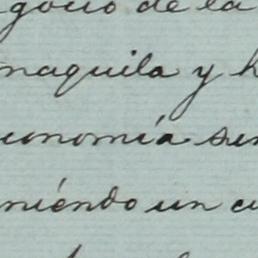 gocio de la
maquila y h
conomía sin
niéndo un cu